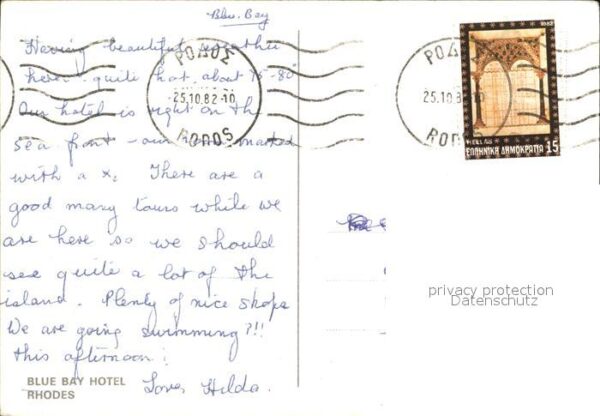 Blue Bay
Having beautiful weather
here - quite hot, about 75-80°
Our hotel is right on the
sea front - our room marked
with a x. There are a
good many tours while we
are here so we should
see quite a lot of the
island. Plenty of nice shops
We are going swimming?!!
this afternoon!
Love, Hilda.
BLUE BAY HOTEL
RHODES
ΡΟΔΟΣ
25.10.82-10
RODOS
ΡΟΔΟΣ
25.10.82-10
RODOS
1982
HELLAS
ΕΛΛΗΝΙΚΗ ΔΗΜΟΚΡΑΤΙΑ 15
privacy protection
Datenschutz